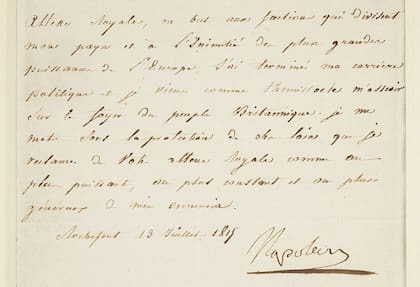 Altesse Royale, en but aux factions qui divisent
mon pays et à l'Inimitié des plus grandes
puissances de l'Europe, j'ai terminé ma carriere
politique et je viens comme Themistocle m'asseoir
sur le foyer du peuple Britannique. je me
mets sous la protection de ses loix que je
reclame de Votre altesse Royale comme au
plus puissant, au plus constant et au plus
généreux de mes ennemis.
Rochefort 13 Juillet 1815
Napoleon